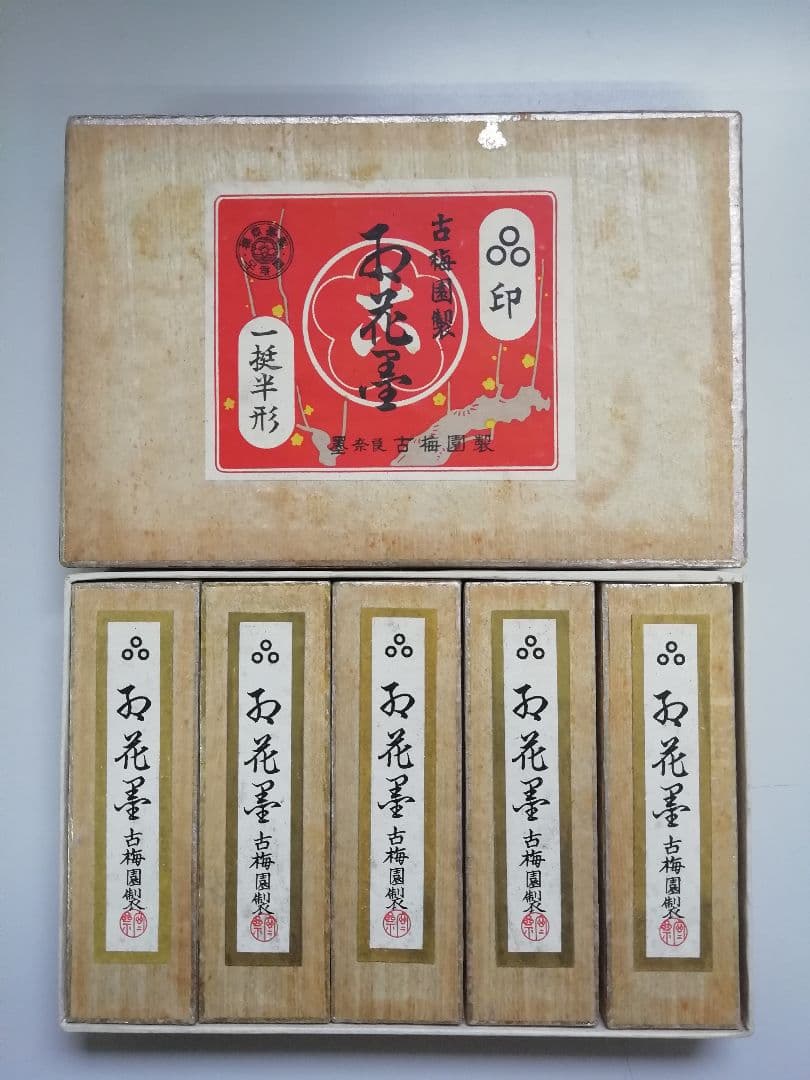 印
古梅園製
紅花墨
一挺半形
墨奈良古梅園製
紅花墨
古梅園製
紅花墨
古梅園製
紅花墨
古梅園製
紅花墨
古梅園製
紅花墨
古梅園製